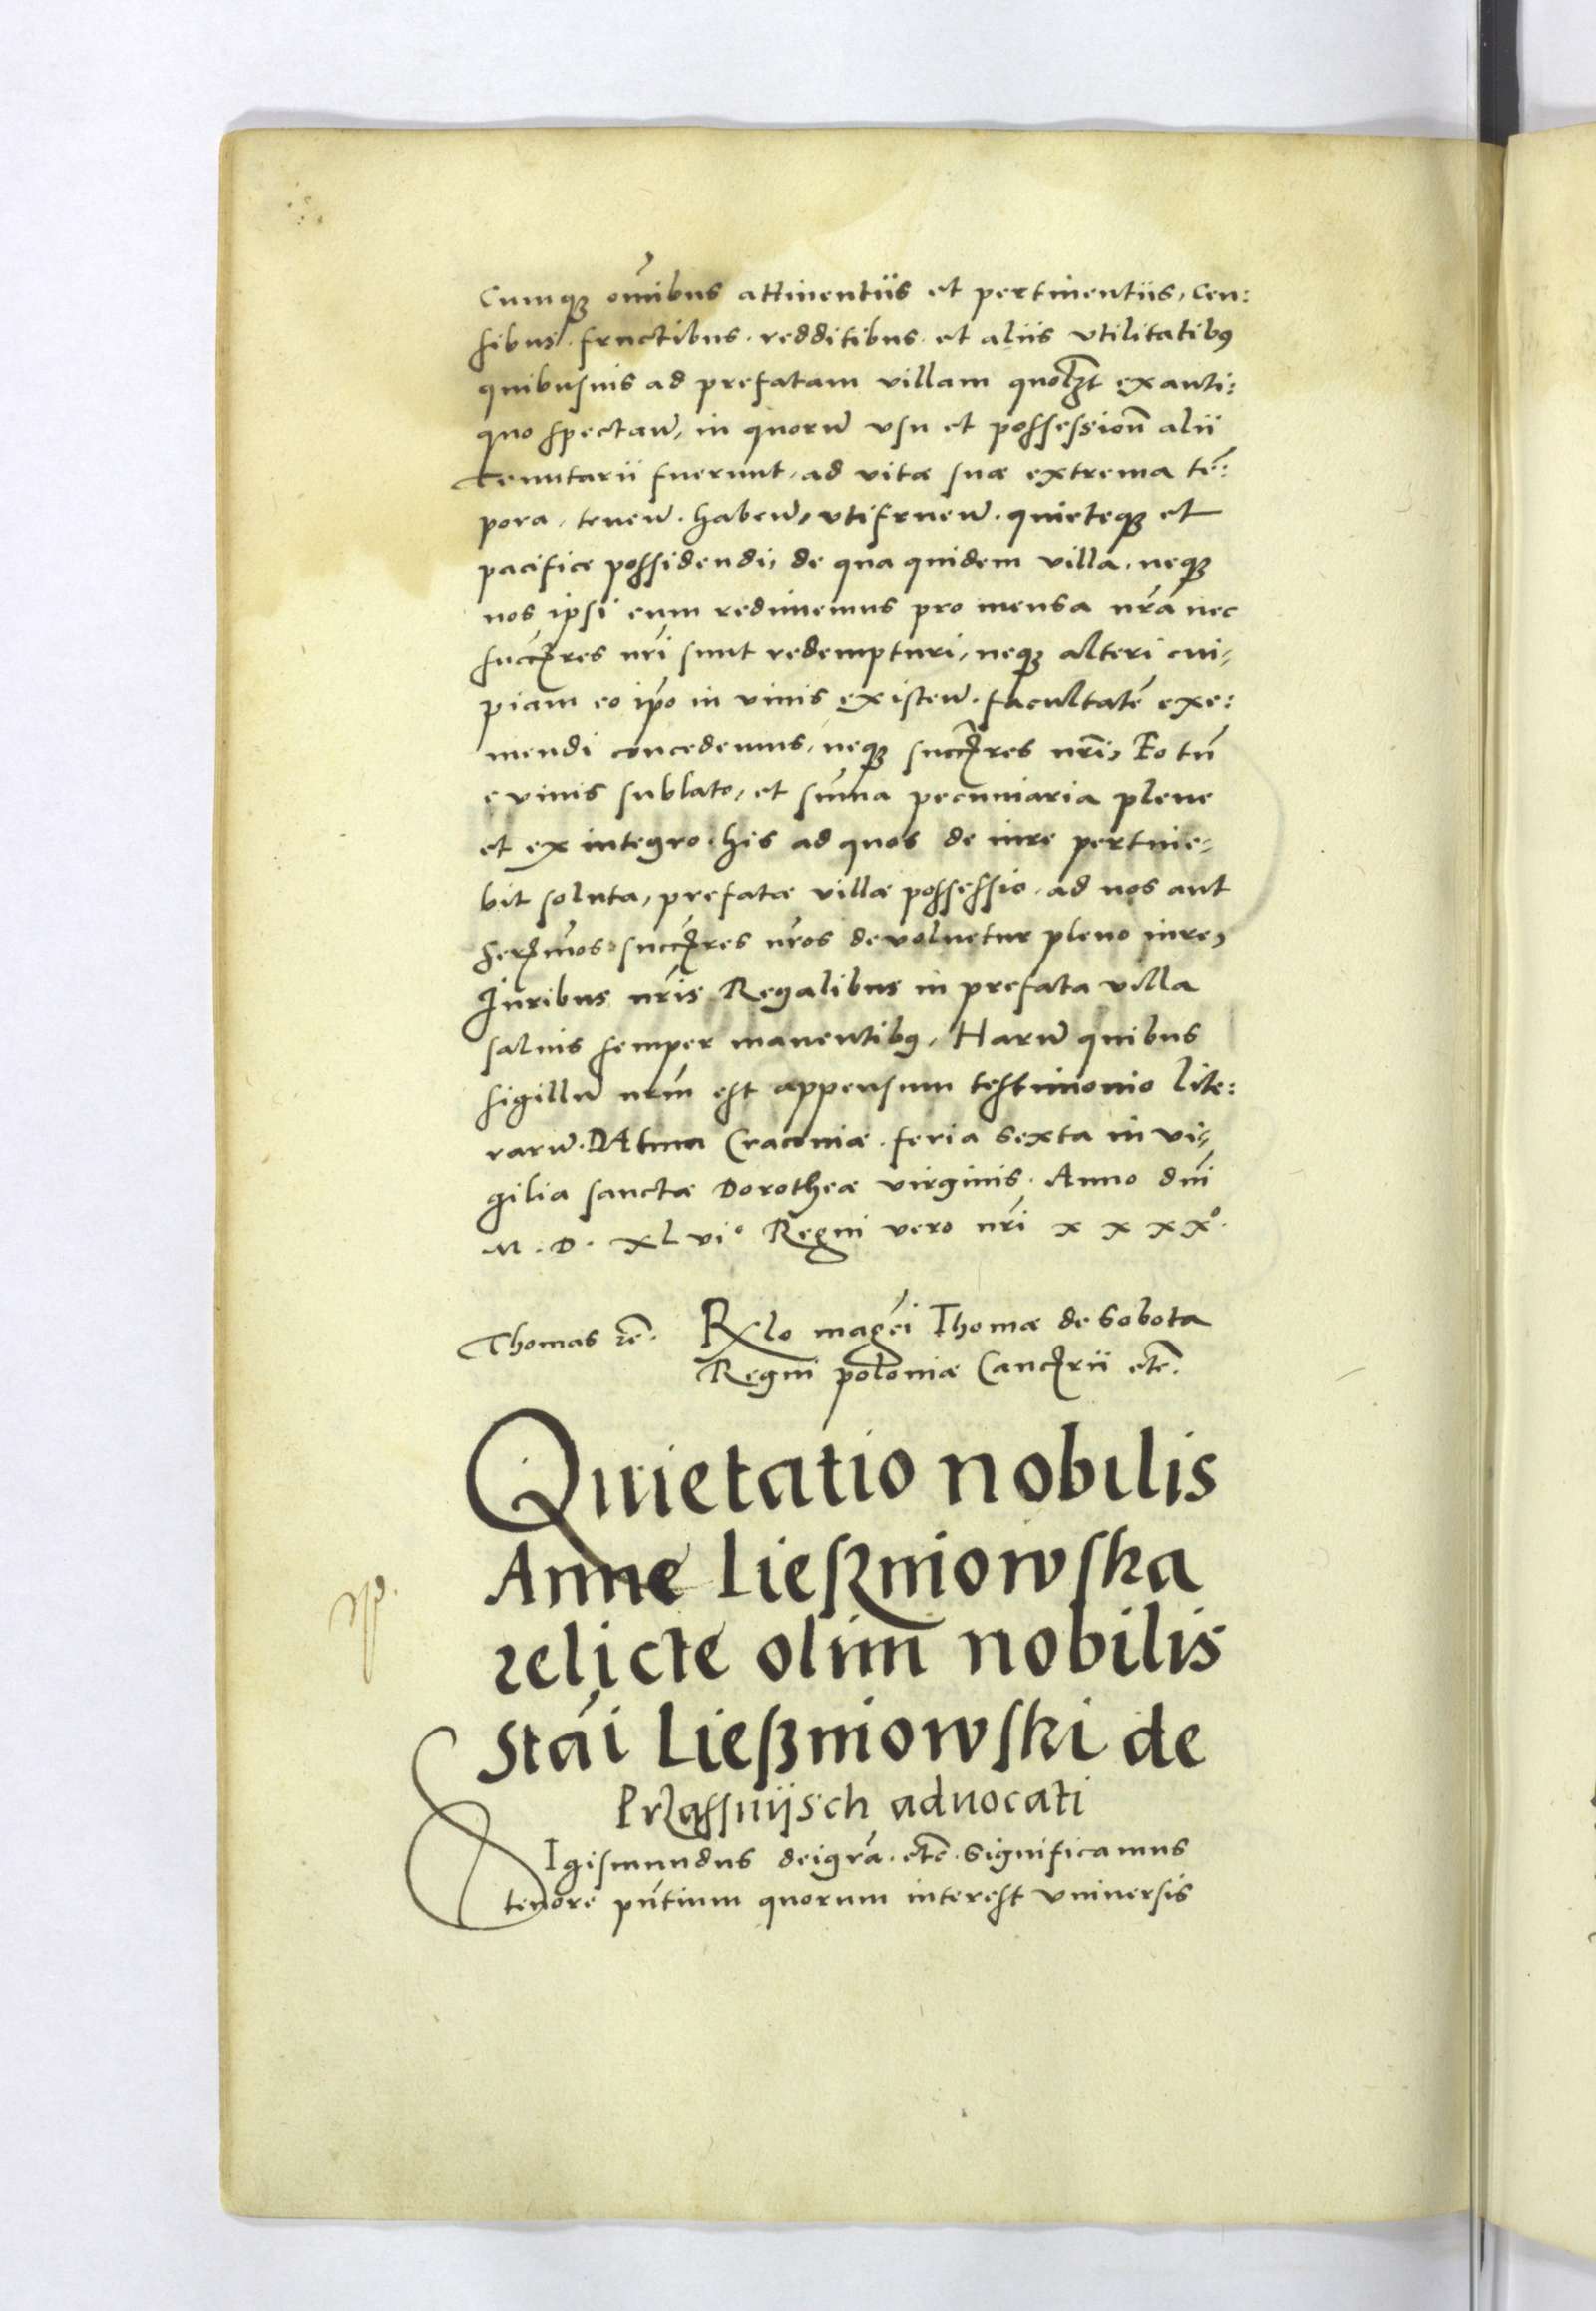 Cumqꝫ om̄ibus attinentiis et pertinentiis, cen:
sibus. fructibus. redditibus. et aliis vtilitatibꝰ
quibusuis ad prefatam villam quolꝫt ex anti:
quo spectan̄, in quorū vsu et possession̄ alii
Tenutarii fuerunt, ad vitæ suæ extrema tē:
pora, tenen̄. haben̄, vtifruen̄. quieteqꝫ et
pacifice possidendi, de qua quidem villa, neqꝫ
nos ipsi eum redimemus pro mensa nr̄a nec
succꝫres nr̄i sunt redempturi, neqꝫ alteri cui-
piam eo ip̄o in viuis existen̄. facultatē exe:
mendi concedemus, neqꝫ succꝫres nr̄i, Eo tn̄
e viuis sublato, et sum̄a pecuniaria plene
et ex integro. his ad quos de iure pertine-
bit soluta, prefatæ villæ possessio. ad nos aut
serꝫmos succꝫres nr̄os deuoluetur pleno iure,
Iuribus nr̄is Regalibus in prefata villa
saluis semper manentibꝰ, Harū quibus
sigillū nr̄m est appensum testimonio lite:
rarū. DAtum Cracouiæ. feria sexta in vi-
gilia sanctæ Dorotheæ virginis. Anno dn̄i
M. D. XL vi° Regni vero nr̄i x x x x°.
Thomas rē. Rlo magci Thomæ de Sobota
Regni poloniæ Cancꝫrii etc̄.
Quietatio nobilis
Anne Lieszniowska
relicte olim nobilis
Stāi Lieszniowski de
Przassnijsch aduocati
SIgismundus dei gr̄a. etc̄. Significamus
tenore pn̄tium quorum interest vniuersis